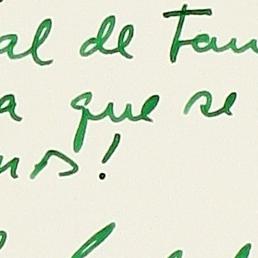 al de tam
a que se
ns!